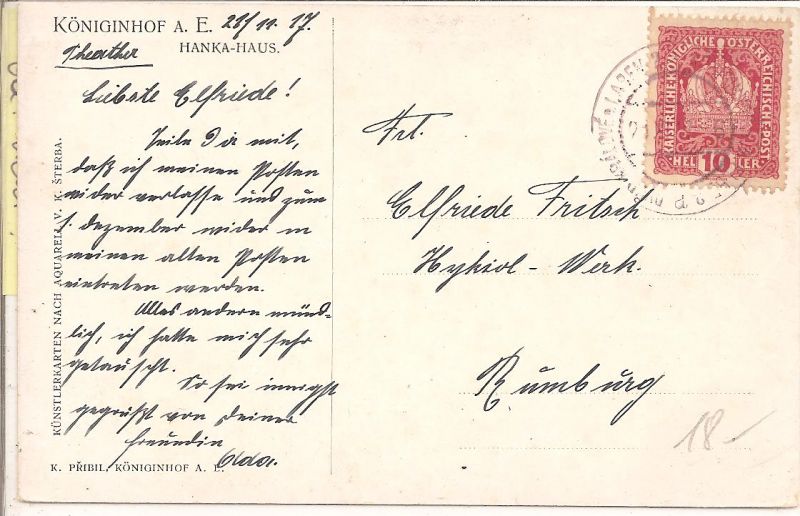 KÖNIGINHOF A. E. 21/11. 17.
Theather HANKA-HAUS.
Liebste Elfriede!
Teile Dir mit,
daß ich meinen Posten
wider verlasse und zum
1. dezember wider in
meinen alten Posten
eintreten werden.
Alles andere münd-
lich, ich hatte mich sehr
getauscht.
So sei innigst
gegrüßt von deiner
freundin
KÜNSTLERKARTEN NACH AQUARELL V. K. ŠTERBA.
K. PŘIBIL, KÖNIGINHOF A. E.
KAISERLICHE KÖNIGLICHE ÖSTERREICHISCHE POST
HEL 10 LER
Frl.
Elfriede Fritsch
Werk.
Rumburg
18-